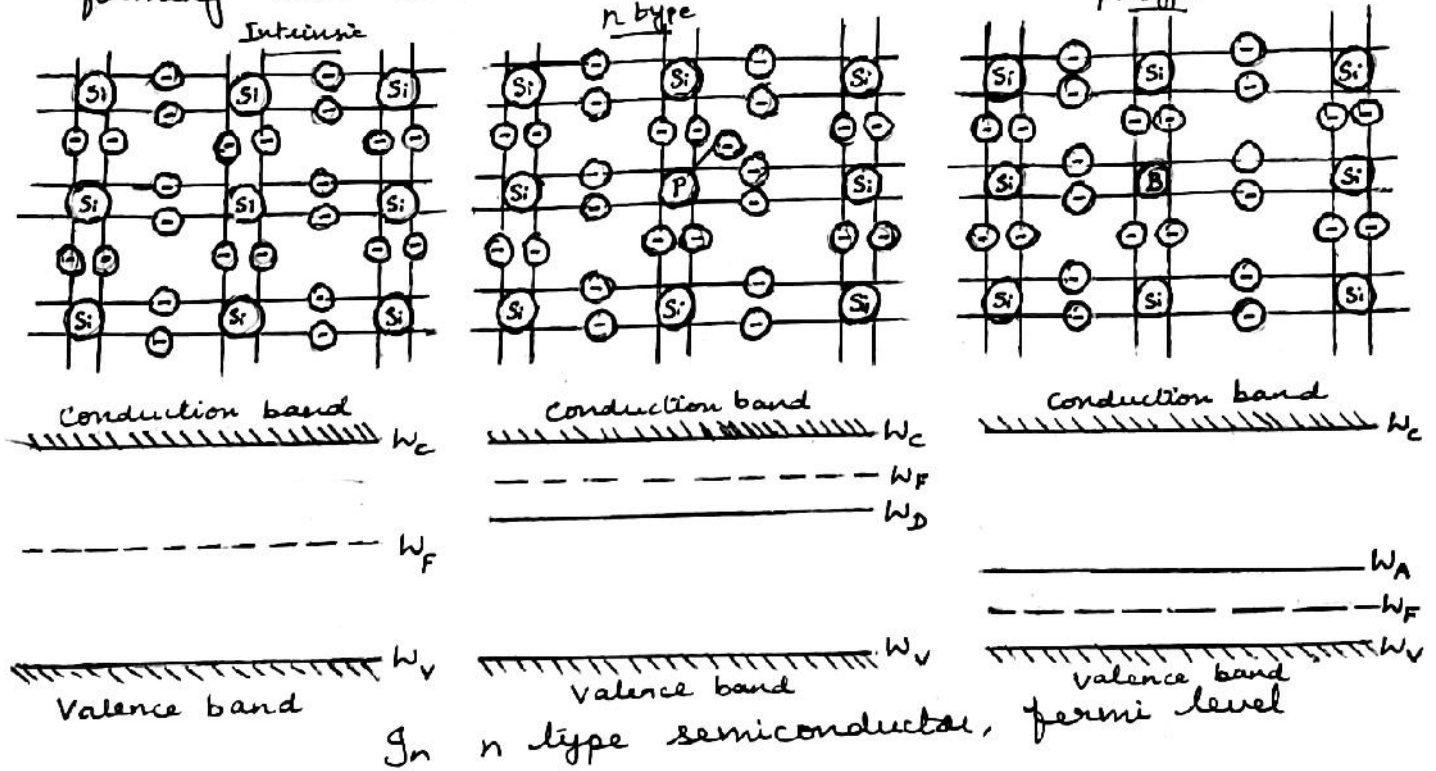 Intrinsic
n type
Si Si Si
Si Si Si
Si Si Si
Si Si Si
Si P Si
Si Si Si
Si Si Si
Si B Si
Si Si Si
Conduction band
W_C
W_F
W_V
Valence band
Conduction band
W_C
W_F
W_D
W_V
Valence band
Conduction band
W_C
W_A
W_F
W_V
Valence band
In n type semiconductor, fermi level